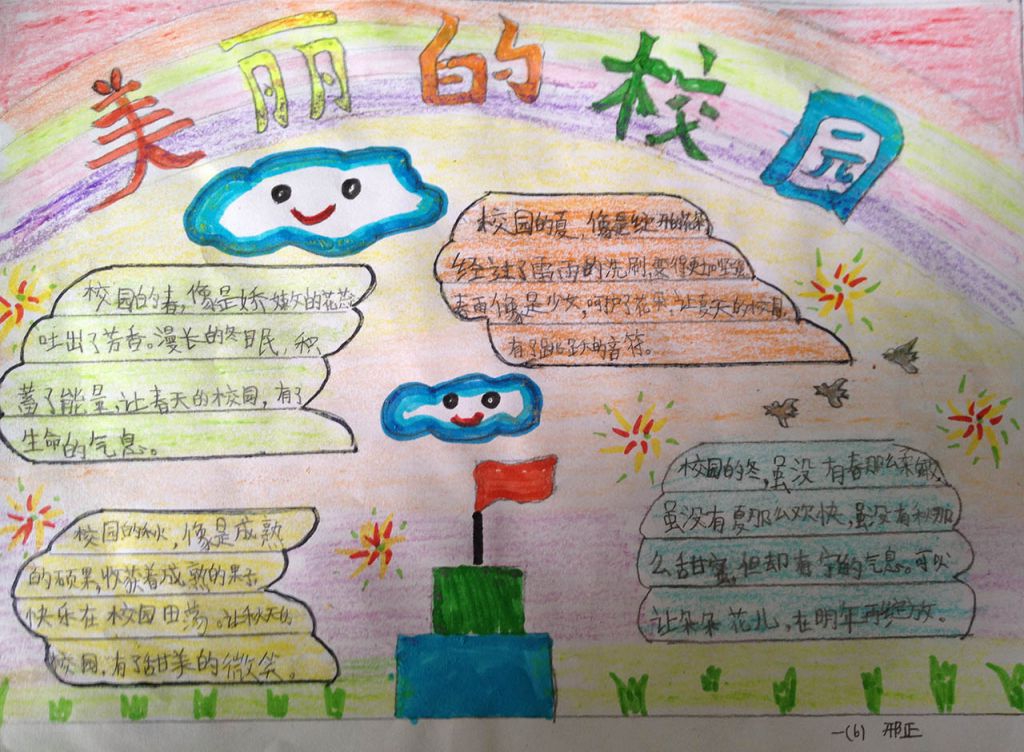 美丽的校园
校园的春,像是娇嫩的花蕊
吐出了芳香。漫长的冬眠,积
蓄了能量,让春天的校园,有了
生命的气息。
校园的夏,像是绽开的花朵
经过了雷雨的洗刷,变得更加坚强
春雨像是少女,呵护了花朵,让夏天的校园,
有了跳跃的音符。
校园的秋,像是成熟
的硕果,收获着成熟的果子
快乐在校园田荡。让秋天的
校园,有了甜美的微笑。
校园的冬,虽没有春那么柔嫩,
虽没有夏那么欢快,虽没有秋那
么甜蜜,但却有 的气息。可以
让朵朵花儿,在明年再绽放。
一(6) 邢正